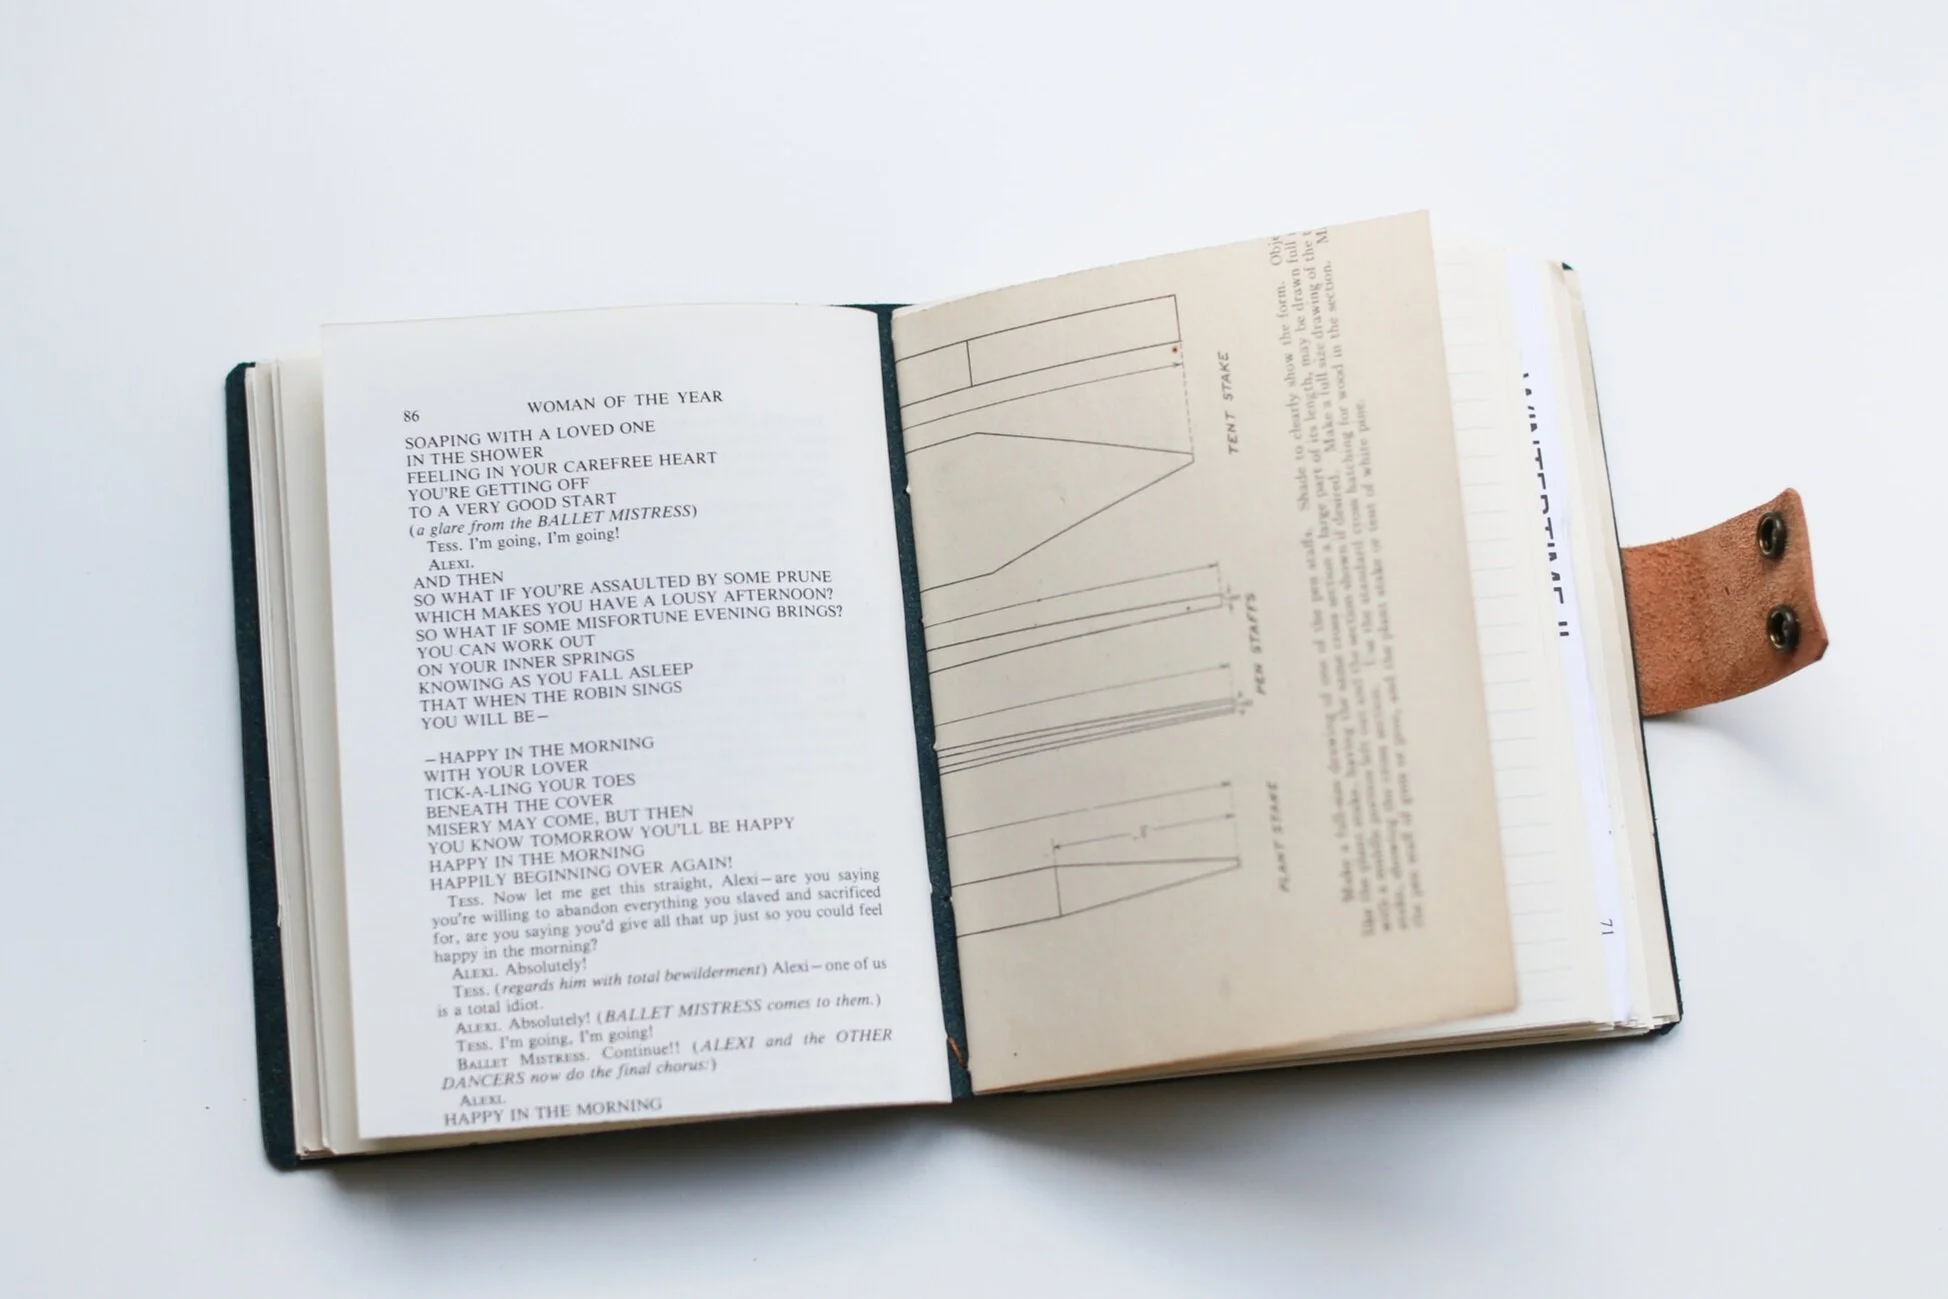 86 WOMAN OF THE YEAR
SOAPING WITH A LOVED ONE
IN THE SHOWER
FEELING IN YOUR CAREFREE HEART
YOU'RE GETTING OFF
TO A VERY GOOD START
(a glare from the BALLET MISTRESS)
TESS. I'm going, I'm going!
ALEXI.
AND THEN
SO WHAT IF YOU'RE ASSAULTED BY SOME PRUNE
WHICH MAKES YOU HAVE A LOUSY AFTERNOON?
SO WHAT IF SOME MISFORTUNE EVENING BRINGS?
YOU CAN WORK OUT
ON YOUR INNER SPRINGS
KNOWING AS YOU FALL ASLEEP
THAT WHEN THE ROBIN SINGS
YOU WILL BE—
—HAPPY IN THE MORNING
WITH YOUR LOVER
TICK-A-LING YOUR TOES
BENEATH THE COVER
MISERY MAY COME, BUT THEN
YOU KNOW TOMORROW YOU'LL BE HAPPY
HAPPY IN THE MORNING
HAPPILY BEGINNING OVER AGAIN!
TESS. Now let me get this straight, Alexi—are you saying
you're willing to abandon everything you slaved and sacrificed
for, are you saying you'd give all that up just so you could feel
happy in the morning?
ALEXI. Absolutely!
TESS. (regards him with total bewilderment) Alexi—one of us
is a total idiot.
ALEXI. Absolutely! (BALLET MISTRESS comes to them.)
TESS. I'm going, I'm going!
BALLET MISTRESS. Continue!! (ALEXI and the OTHER
DANCERS now do the final chorus:)
ALEXI.
HAPPY IN THE MORNING
TENT STAKE
PEN STAFFS
PLANT STAKE
Make a full-size drawing of one of the pen staffs. Shade to clearly show the form. Obje
like the plant stake, having the same cross section a large part of its length, may be drawn full
with a middle portion left out and the section shown if desired. Make a full size drawing of the t
stake, showing the cross section. Use the standard cross hatching for wood in the section. M
the pen staff of gum or pine, and the plant stake or tent of white pine.
71